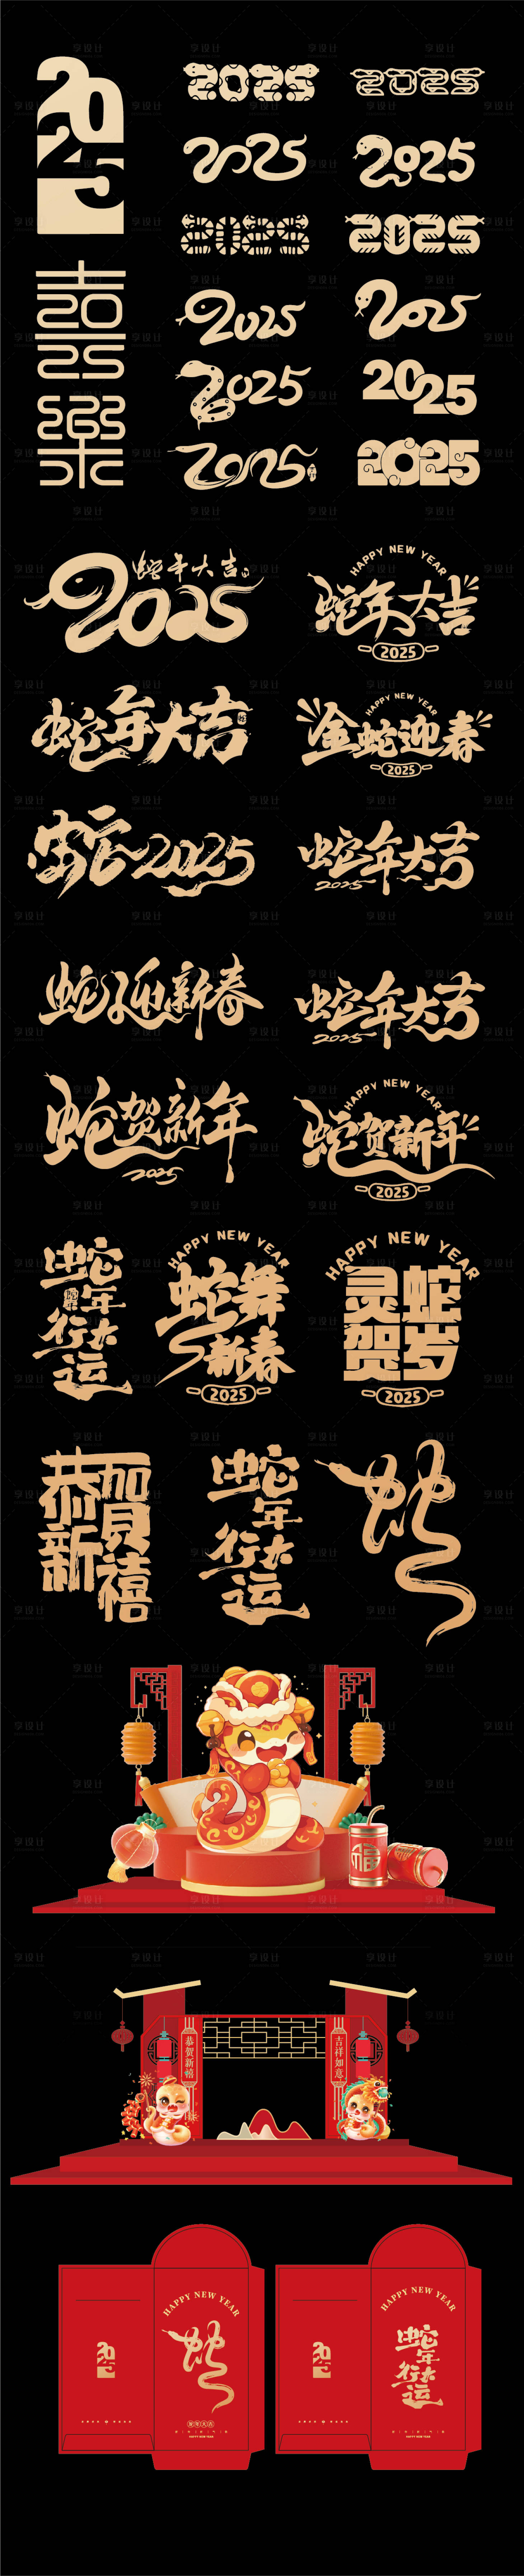 2025
2025
2025
2025
2025
2025
2025
2025
2025
2025
喜
2025
樂
2025
2025
2025
2025
蛇年大吉
2025
HAPPY NEW YEAR
蛇年大吉
2025
蛇年大吉
HAPPY NEW YEAR
金蛇迎春
2025
蛇2025
蛇年大吉
2025
蛇迎新春
蛇年大吉
2025
蛇贺新年
2025
HAPPY NEW YEAR
蛇贺新年
2025
蛇年
行大
运
HAPPY NEW YEAR
蛇舞
新春
2025
HAPPY NEW YEAR
灵蛇
贺岁
2025
恭贺
新禧
蛇年
行大
运
蛇
2
福
恭賀新禧
吉祥如意
HAPPY NEW YEAR
蛇
2025
HAPPY NEW YEAR
HAPPY NEW YEAR
蛇年
行大
运
2025
HAPPY NEW YEAR
享设计